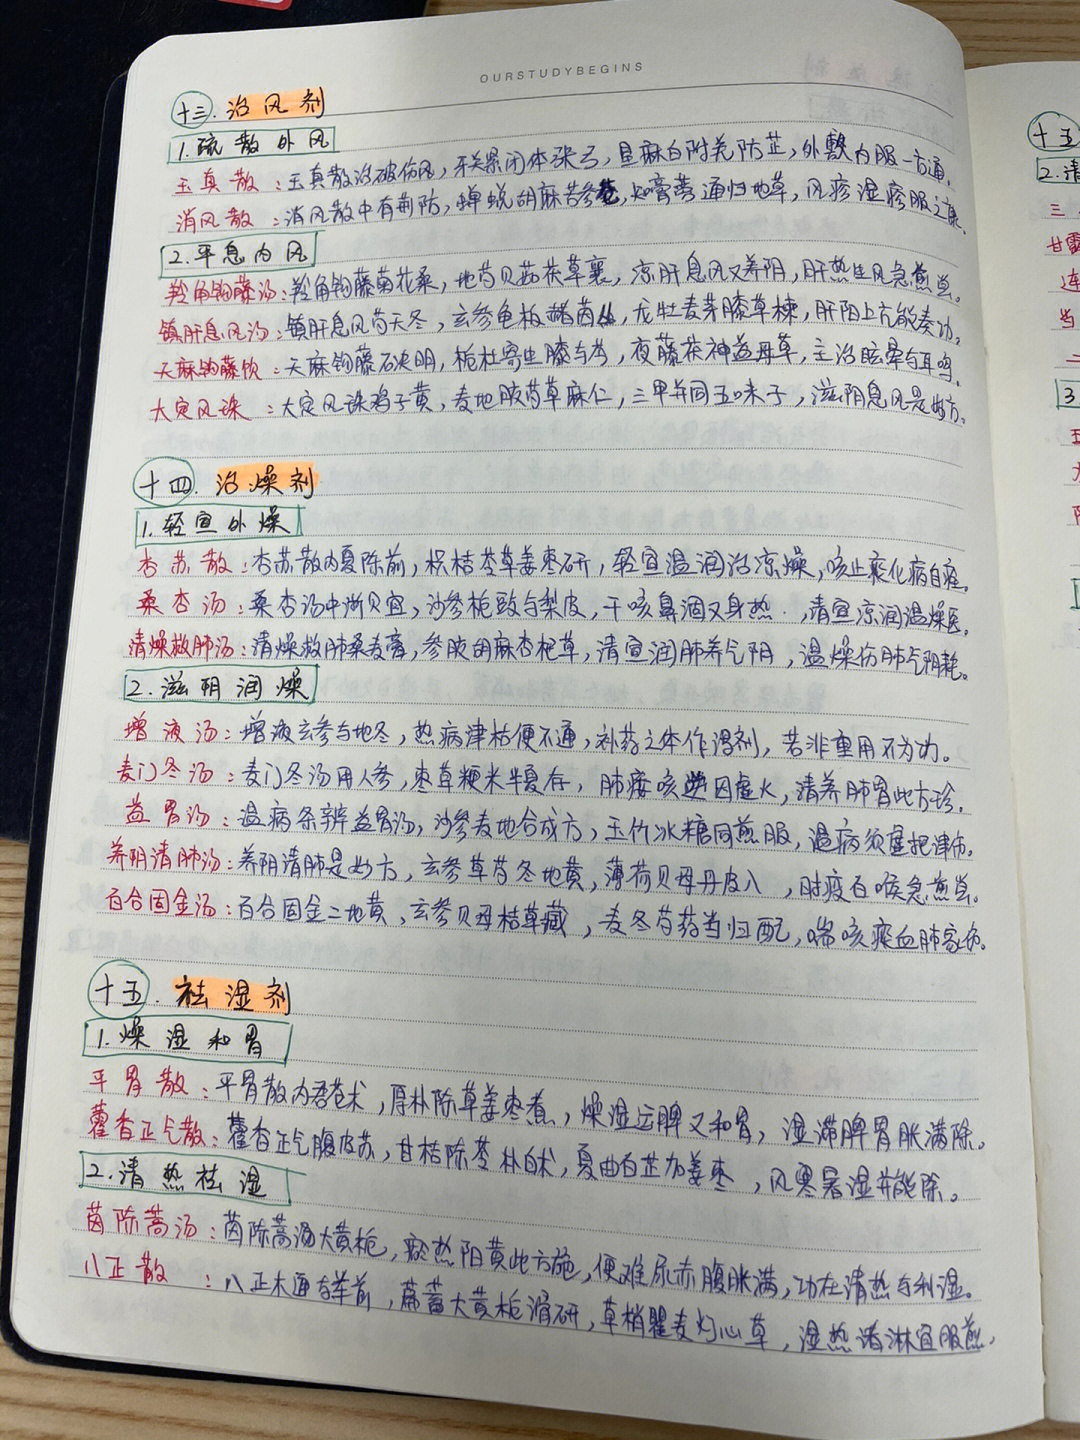 OURSTUDYBEGINS
十三.治风剂
1.疏散外风
玉真散:玉真散治破伤风,牙关紧闭体张弓,星麻白附羌防芷,外敷内服一方通。
消风散:消风散中有荆防,蝉蜕胡麻苦参苍,知膏蒡通归地草,风疹湿疹服之康。
2.平息内风
羚角钩藤汤:羚角钩藤菊花桑,地芍贝茹茯草襄,凉肝息风又养阴,肝热生风急煎尝。
镇肝息风汤:镇肝息风芍天冬,玄参龟板赭茵从,龙牡麦芽膝草楝,肝阳上亢能奏功。
天麻钩藤饮:天麻钩藤石决明,栀杜寄生膝与芩,夜藤茯神益母草,主治眩晕与耳鸣。
大定风珠:大定风珠鸡子黄,麦地胶芍草麻仁,三甲并同五味子,滋阴息风是妙方。
十四.治燥剂
1.轻宣外燥
杏苏散:杏苏散内夏陈前,枳桔苓草姜枣研,轻宣温润治凉燥,咳止痰化病自痊。
桑杏汤:桑杏汤中浙贝宜,沙参栀豉与梨皮,干咳鼻涸又身热,清宣凉润温燥医。
清燥救肺汤:清燥救肺桑麦膏,参胶胡麻杏杷草,清宣润肺养气阴,温燥伤肺气阴耗。
2.滋阴润燥
增液汤:增液玄参与地冬,热病津枯便不通,补药之体作泻剂,若非重用不为功。
麦门冬汤:麦门冬汤用人参,枣草粳米半夏存,肺痿咳逆因虚火,清养肺胃此方珍。
益胃汤:温病条辨益胃汤,沙参麦地合成方,玉竹冰糖同煎服,温病须虑把津伤。
养阴清肺汤:养阴清肺是妙方,玄参草芍冬地黄,薄荷贝母丹皮入,时疫白喉急煎尝。
百合固金汤:百合固金二地黄,玄参贝母桔草藏,麦冬芍药当归配,喘咳痰血肺家伤。
十五.祛湿剂
1.燥湿和胃
平胃散:平胃散内君苍术,厚朴陈草姜枣煮,燥湿运脾又和胃,湿滞脾胃胀满除。
藿香正气散:藿香正气腹皮苏,甘桔陈苓朴白术,夏曲白芷加姜枣,风寒暑湿并能除。
2.清热祛湿
茵陈蒿汤:茵陈蒿汤大黄栀,瘀热阳黄此方施,便难尿赤腹胀满,功在清热与利湿。
八正散:八正木通与车前,萹蓄大黄栀滑研,草梢瞿麦灯心草,湿热诸淋宜服煎,
十五
2.清
三
甘露
连
当
二
3